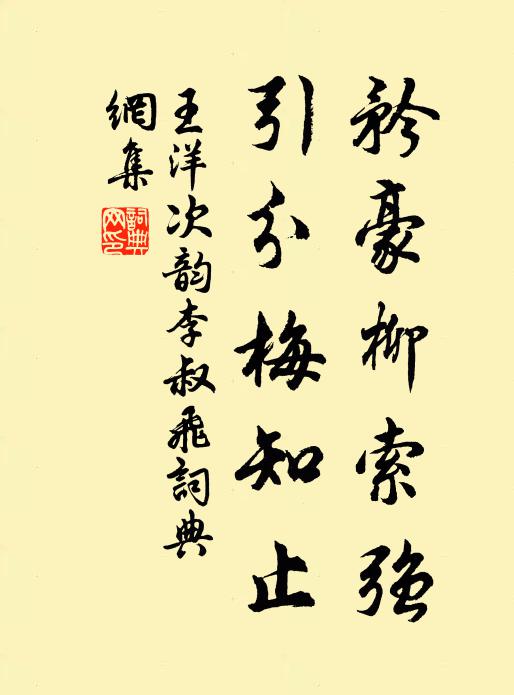 矜豪柳索强
引分梅知止
王洋次韵李叔飛詞典
網集
詞典網印